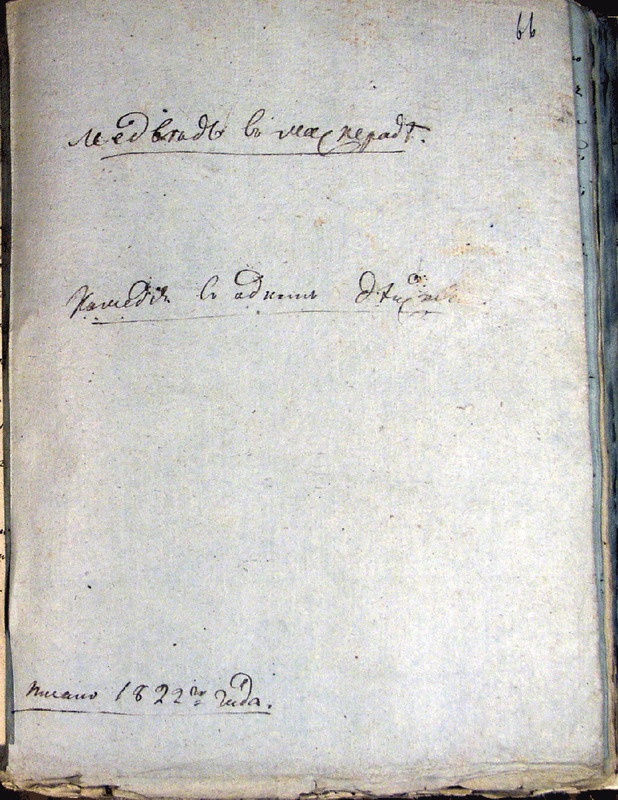 66
Медвѣдь въ маскерадѣ.
Комедія въ одномъ дѣйст
писано 1822го года.